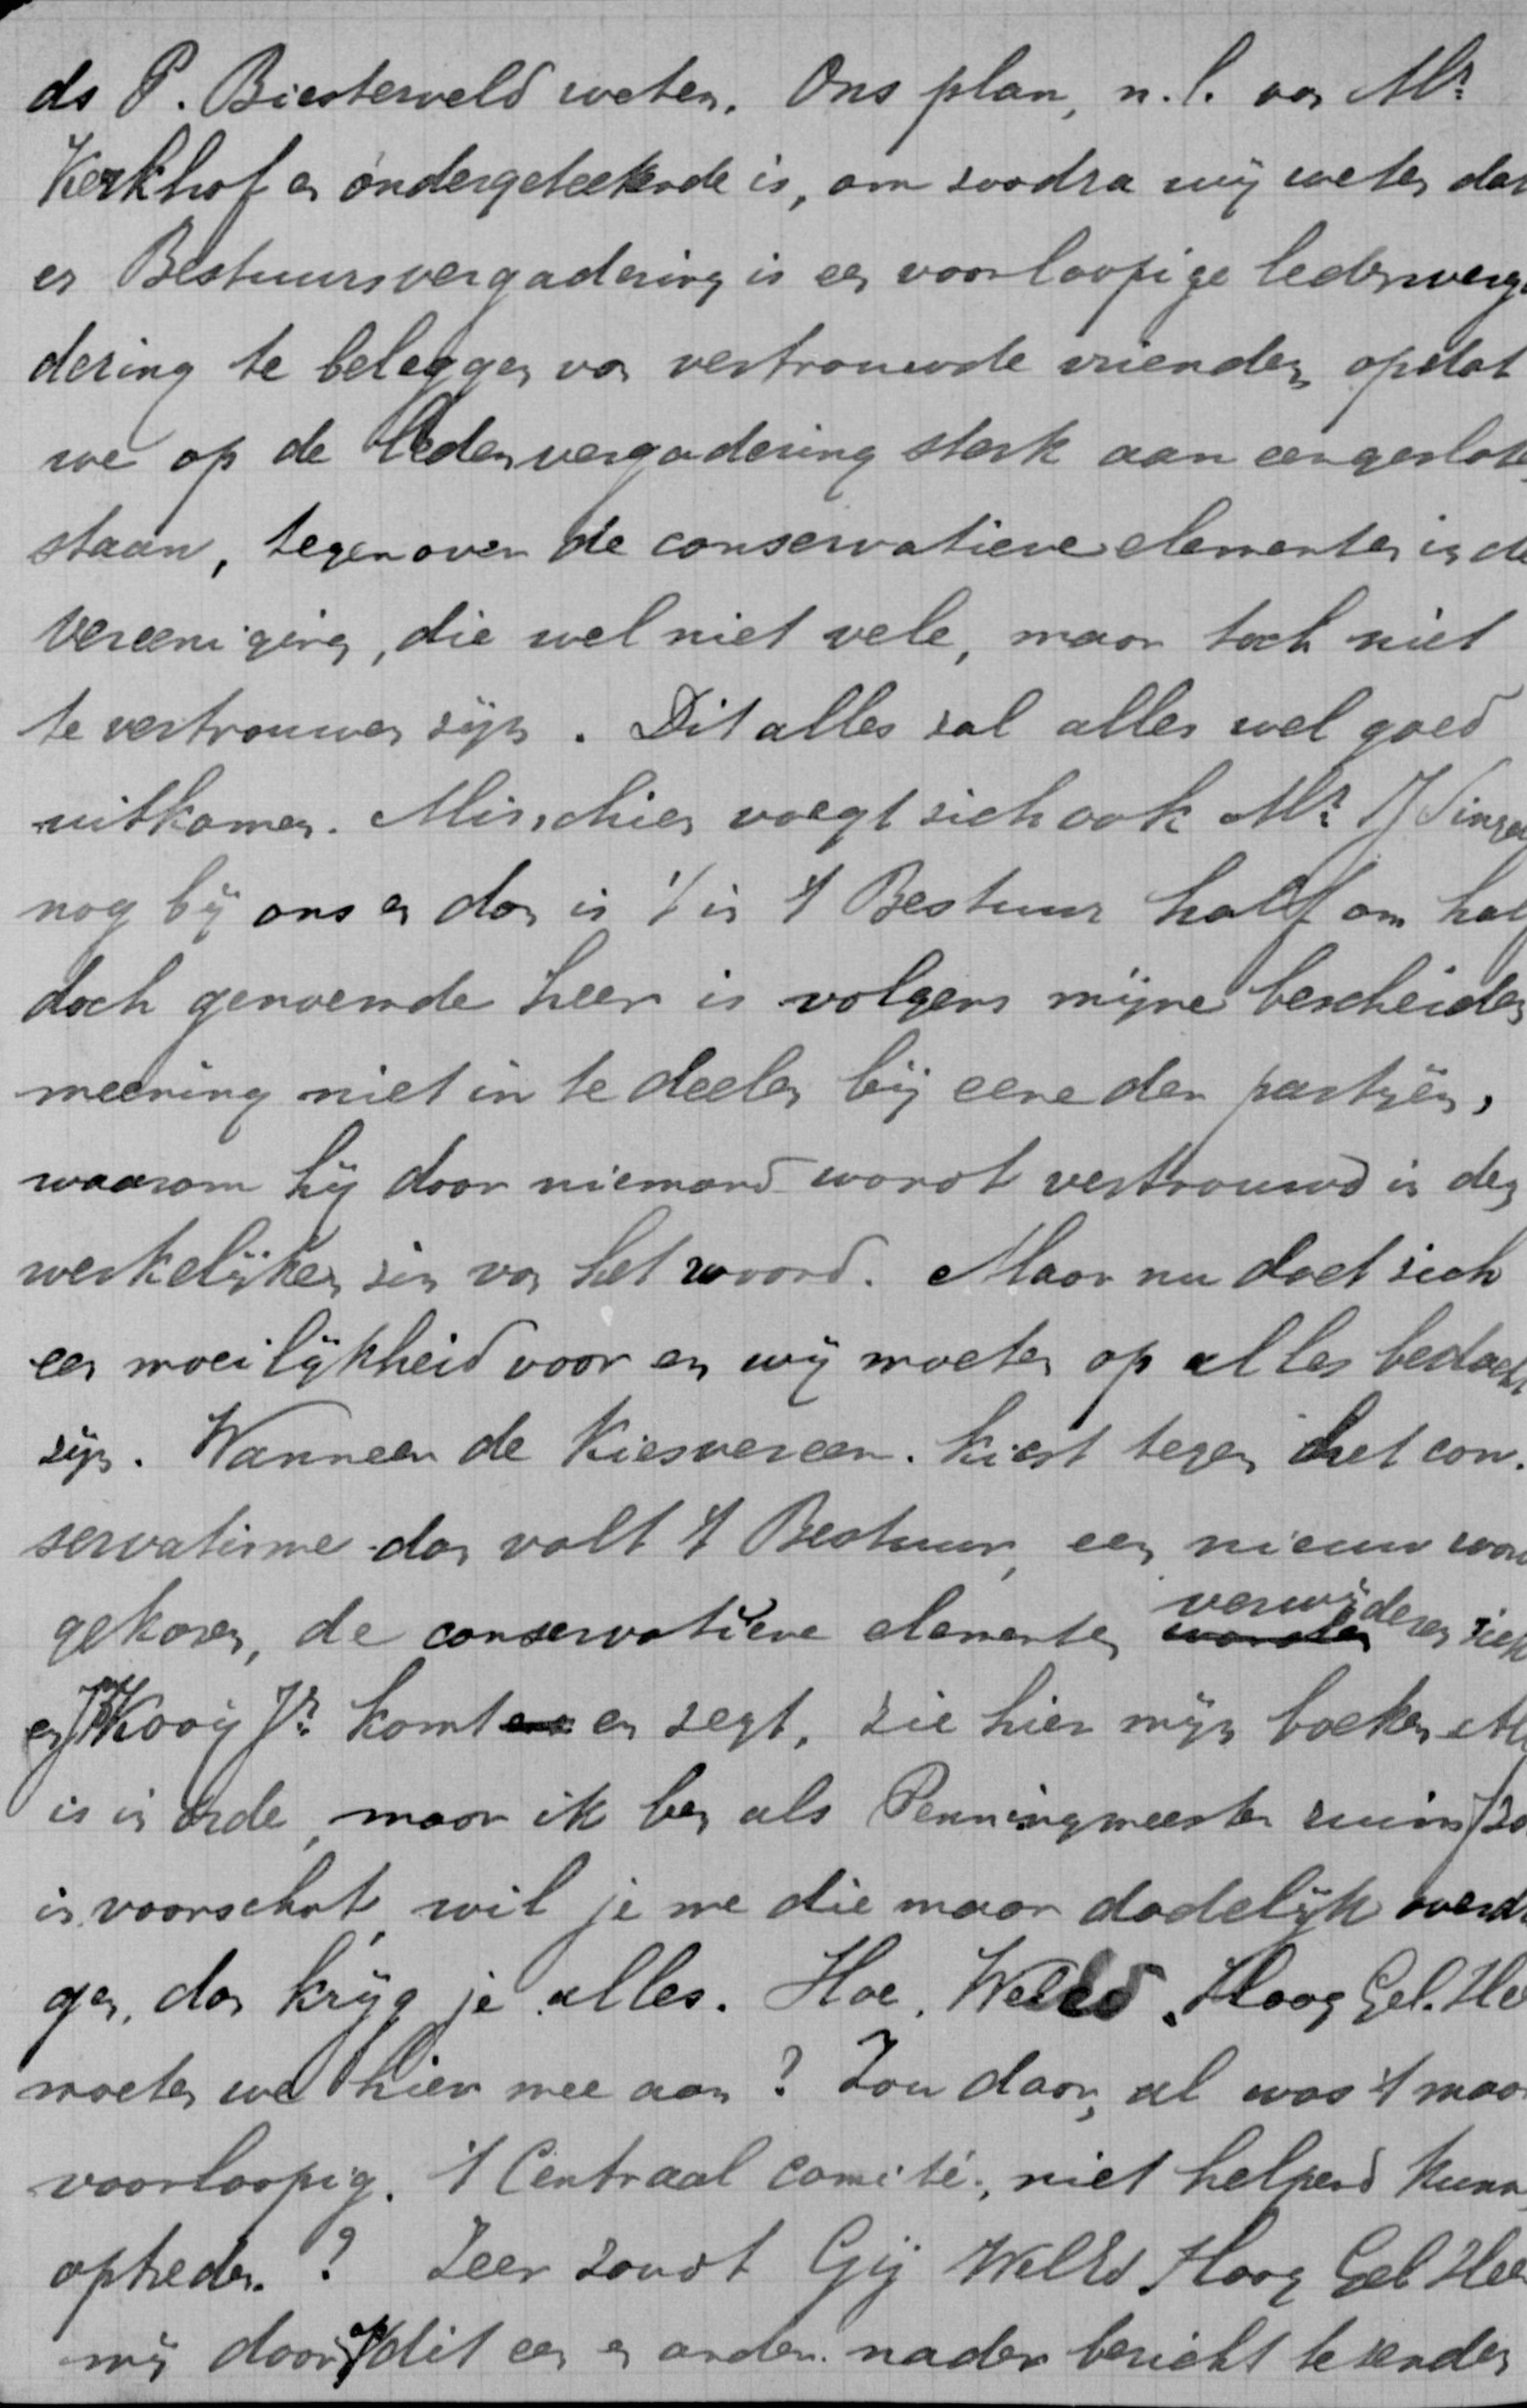 ds P. Biesterveld weten. Ons plan, n.l. van Mr
Kerkhof en ondergeteekende is, om zoodra wij weten dat
er Bestuursvergadering is een voorloopige ledenverga
dering te beleggen van vertrouwde vrienden opdat
we op de Ledenvergadering sterk aaneengesloten
staan, tegenover de conservatieve elementen in de
Vereeniging, die wel niet vele, maar toch niet
te vertrouwen zijn. Dit alles zal alles wel goed
uitkomen. Misschien voegt zich ook Mr J
nog bij ons en dan is 't in 't Bestuur half om half
doch genoemde heer is volgens mijne bescheiden
meening niet in te deelen bij eene der partijen,
waarom hij door niemand wordt vertrouwd in den
werkelijken zin van het woord. Maar nu doet zich
een moeilijkheid voor en wij moeten op alles bedacht
zijn. Wanneer de Kiesvereen. kiest tegen het con.
servatisme dan valt 't Bestuur, een nieuw word
gekozen, de conservatieve elementen worden verwijderen zich
en Kooij Jr. komt en zegt, zie hier mijn boeken All
is in orde, maar ik ben als Penningmeester ruim
in voorschot, wil je me die maar dadelijk overdr
gen, dan krijg je alles. Hoe, WelEd. Hoog Gel. He
moeten we hier mee aan? Zou daar, al was 't maar
voorloopig. 't Centraal Comité, niet helpend kunn
optreden? Zeer zoudt Gij WelEd Hoog Gel Hee
mij door op dit een en ander nader bericht te zenden